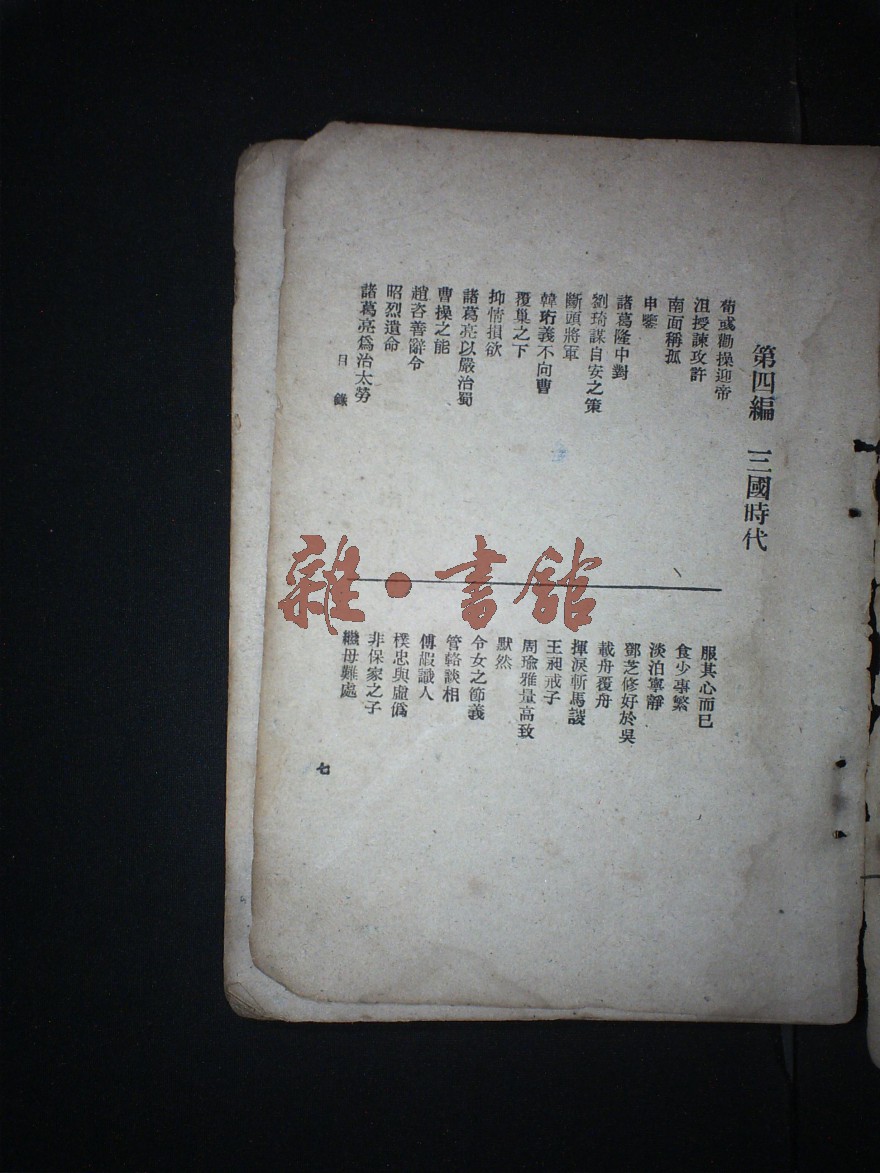 第四編　三國時代
荀彧勸操迎帝
沮授諫攻許
南面稱孤
申鑒
諸葛隆中對
劉琦謀自安之策
斷頭將軍
韓珩義不向曹
覆巢之下
抑情損欲
諸葛亮以嚴治蜀
曹操之能
趙咨善辭令
昭烈遺命
諸葛亮爲治太勞
服其心而已
食少事繁
淡泊寧靜
鄧芝修好於吳
載舟覆舟
揮淚斬馬謖
王昶戒子
周瑜雅量高致
默然
令女之節義
管輅談相
傅嘏識人
樸忠與虛僞
非保家之子
繼母難處
目錄
七
雜·書館